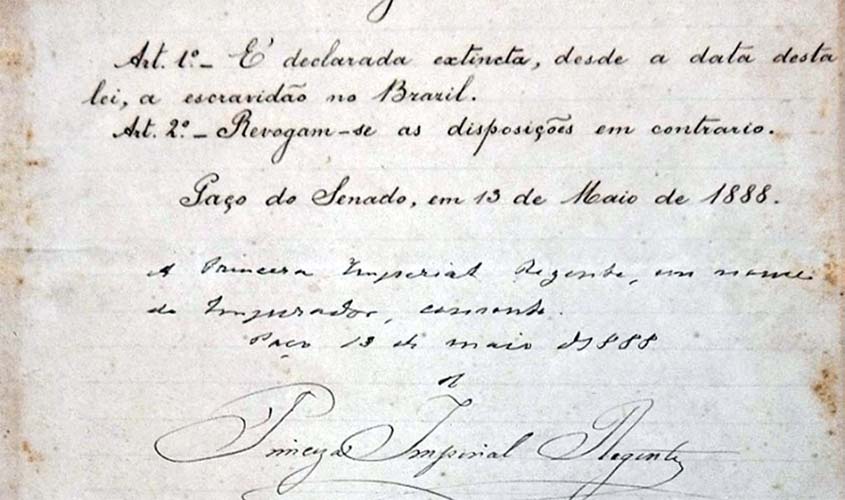 Art. 1.º - É declarada extincta, desde a data desta
lei, a escravidão no Brazil.
Art. 2.º - Revogam-se as disposições em contrario.
Paço do Senado, em 13 de Maio de 1888.
A Princeza Imperial Regente, em nome
do Imperador, consente.
Paço 13 de maio de 1888
A
Princeza Imperial Regente